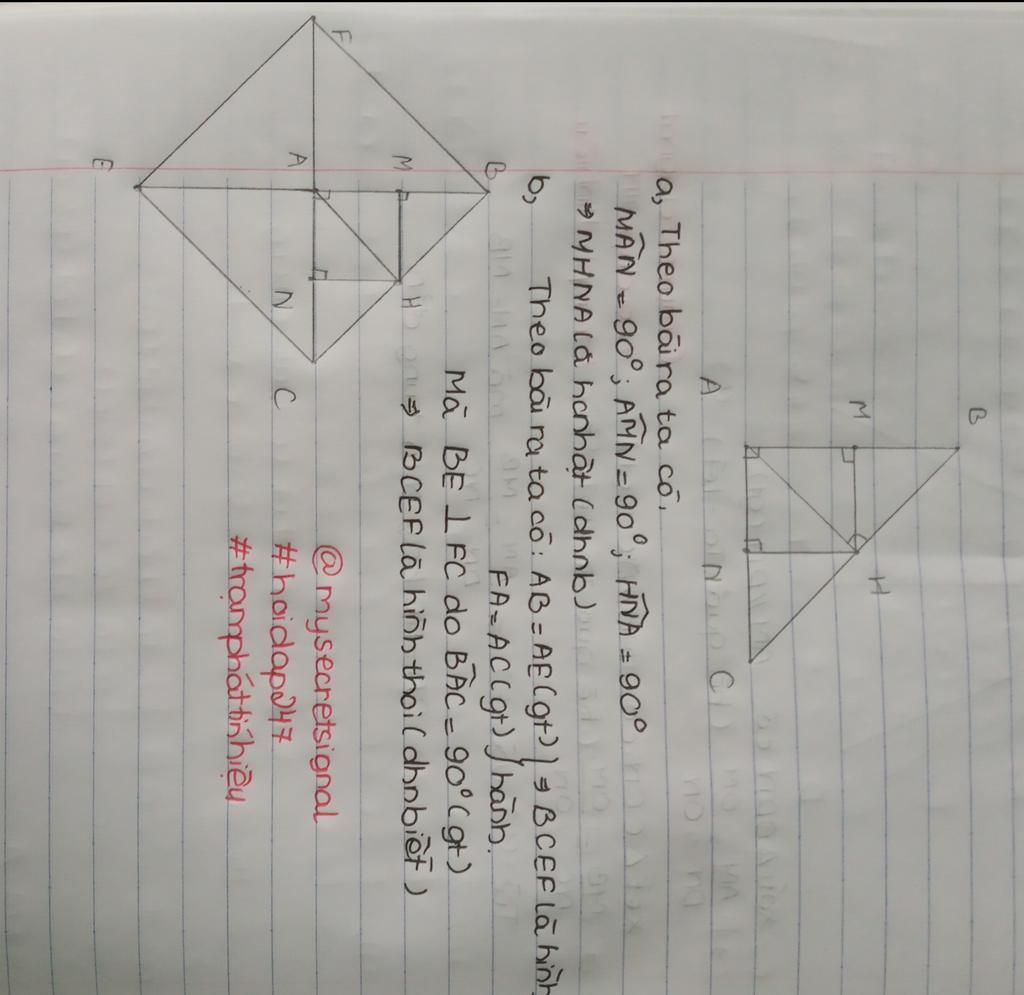 B
M
H
A
N
C
a, Theo bài ra ta có.
MÂN = 90°; AM̂N = 90°; HN̂A = 90°
⇒ MHNA là hcnhật (dhnb)
b, Theo bài ra ta có: AB = AE (gt) } ⇒ BCEF là hình
FA = AC (gt) } hành.
Mà BE ⊥ FC do BÂC = 90° (gt)
⇒ BCEF là hình thoi (dhnbiết)
F
B
M
H
A
N
C
E
@mysecretsignal
#hoidap247
#trạmpháttínhiệu